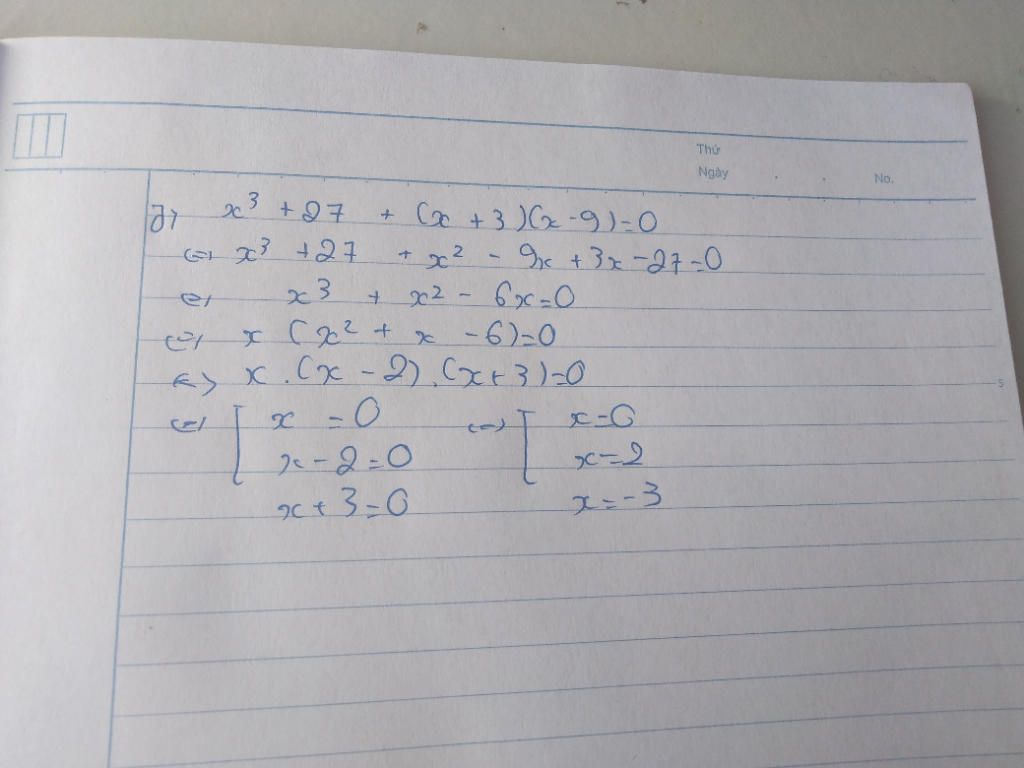 Thứ
Ngày . .
No.
7) x³ + 27 + (x + 3)(x - 9) = 0
<=> x³ + 27 + x² - 9x + 3x - 27 = 0
<=> x³ + x² - 6x = 0
<=> x (x² + x - 6) = 0
<=> x . (x - 2) . (x + 3) = 0
5
<=> [ x = 0 <=> [ x = 0
x - 2 = 0 x = 2
x + 3 = 0 x = -3